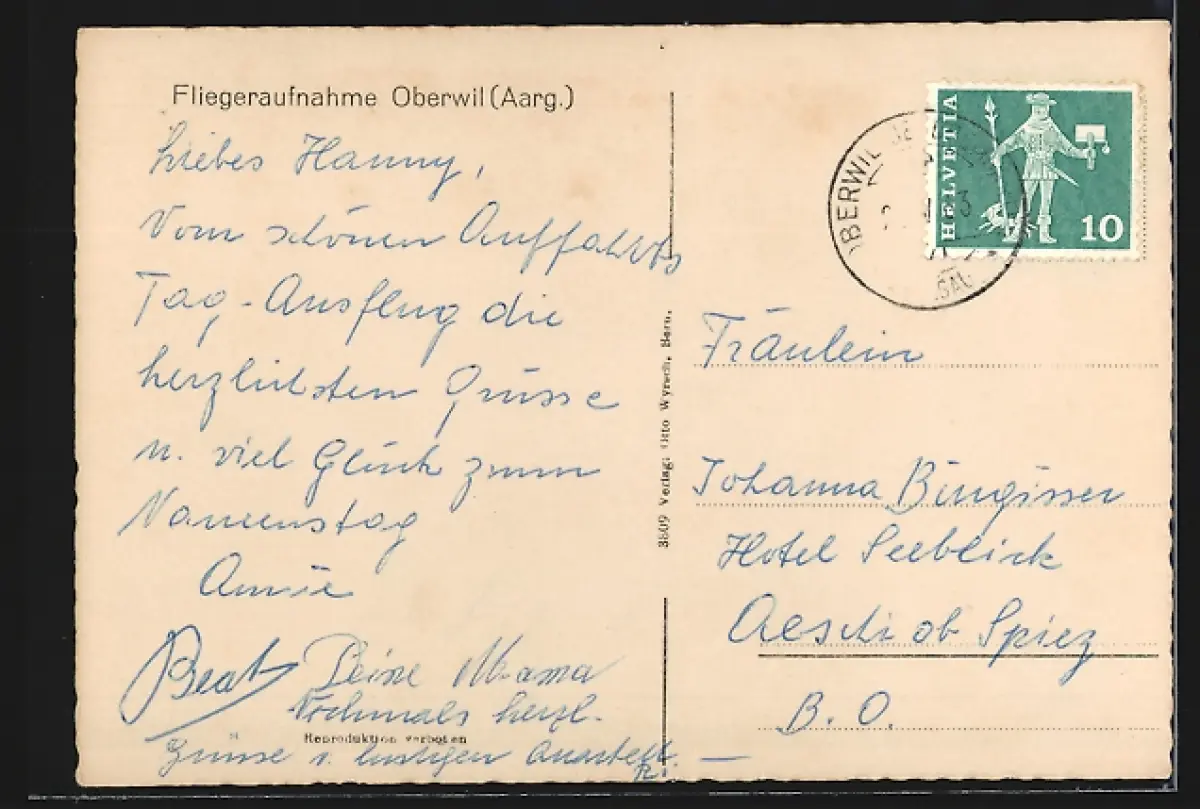 Fliegeraufnahme Oberwil (Aarg.)
Liebes Hanny,
Vom schönen Auffahrts
Tag-Ausflug die
herzlichsten Grüsse
u. viel Glück zum
Namenstag
Annie
Beat Deine Mama
Nochmals herzl.
Reproduktion verboten
Grüsse v. lustigen Quartett.
3809 Verlag: Otto Wyrsch, Bern.
OBERWIL
HELVETIA
10
Fräulein
Johanna Bingisser
Hotel Seeblick
Aeschi ob Spiez
B. O.